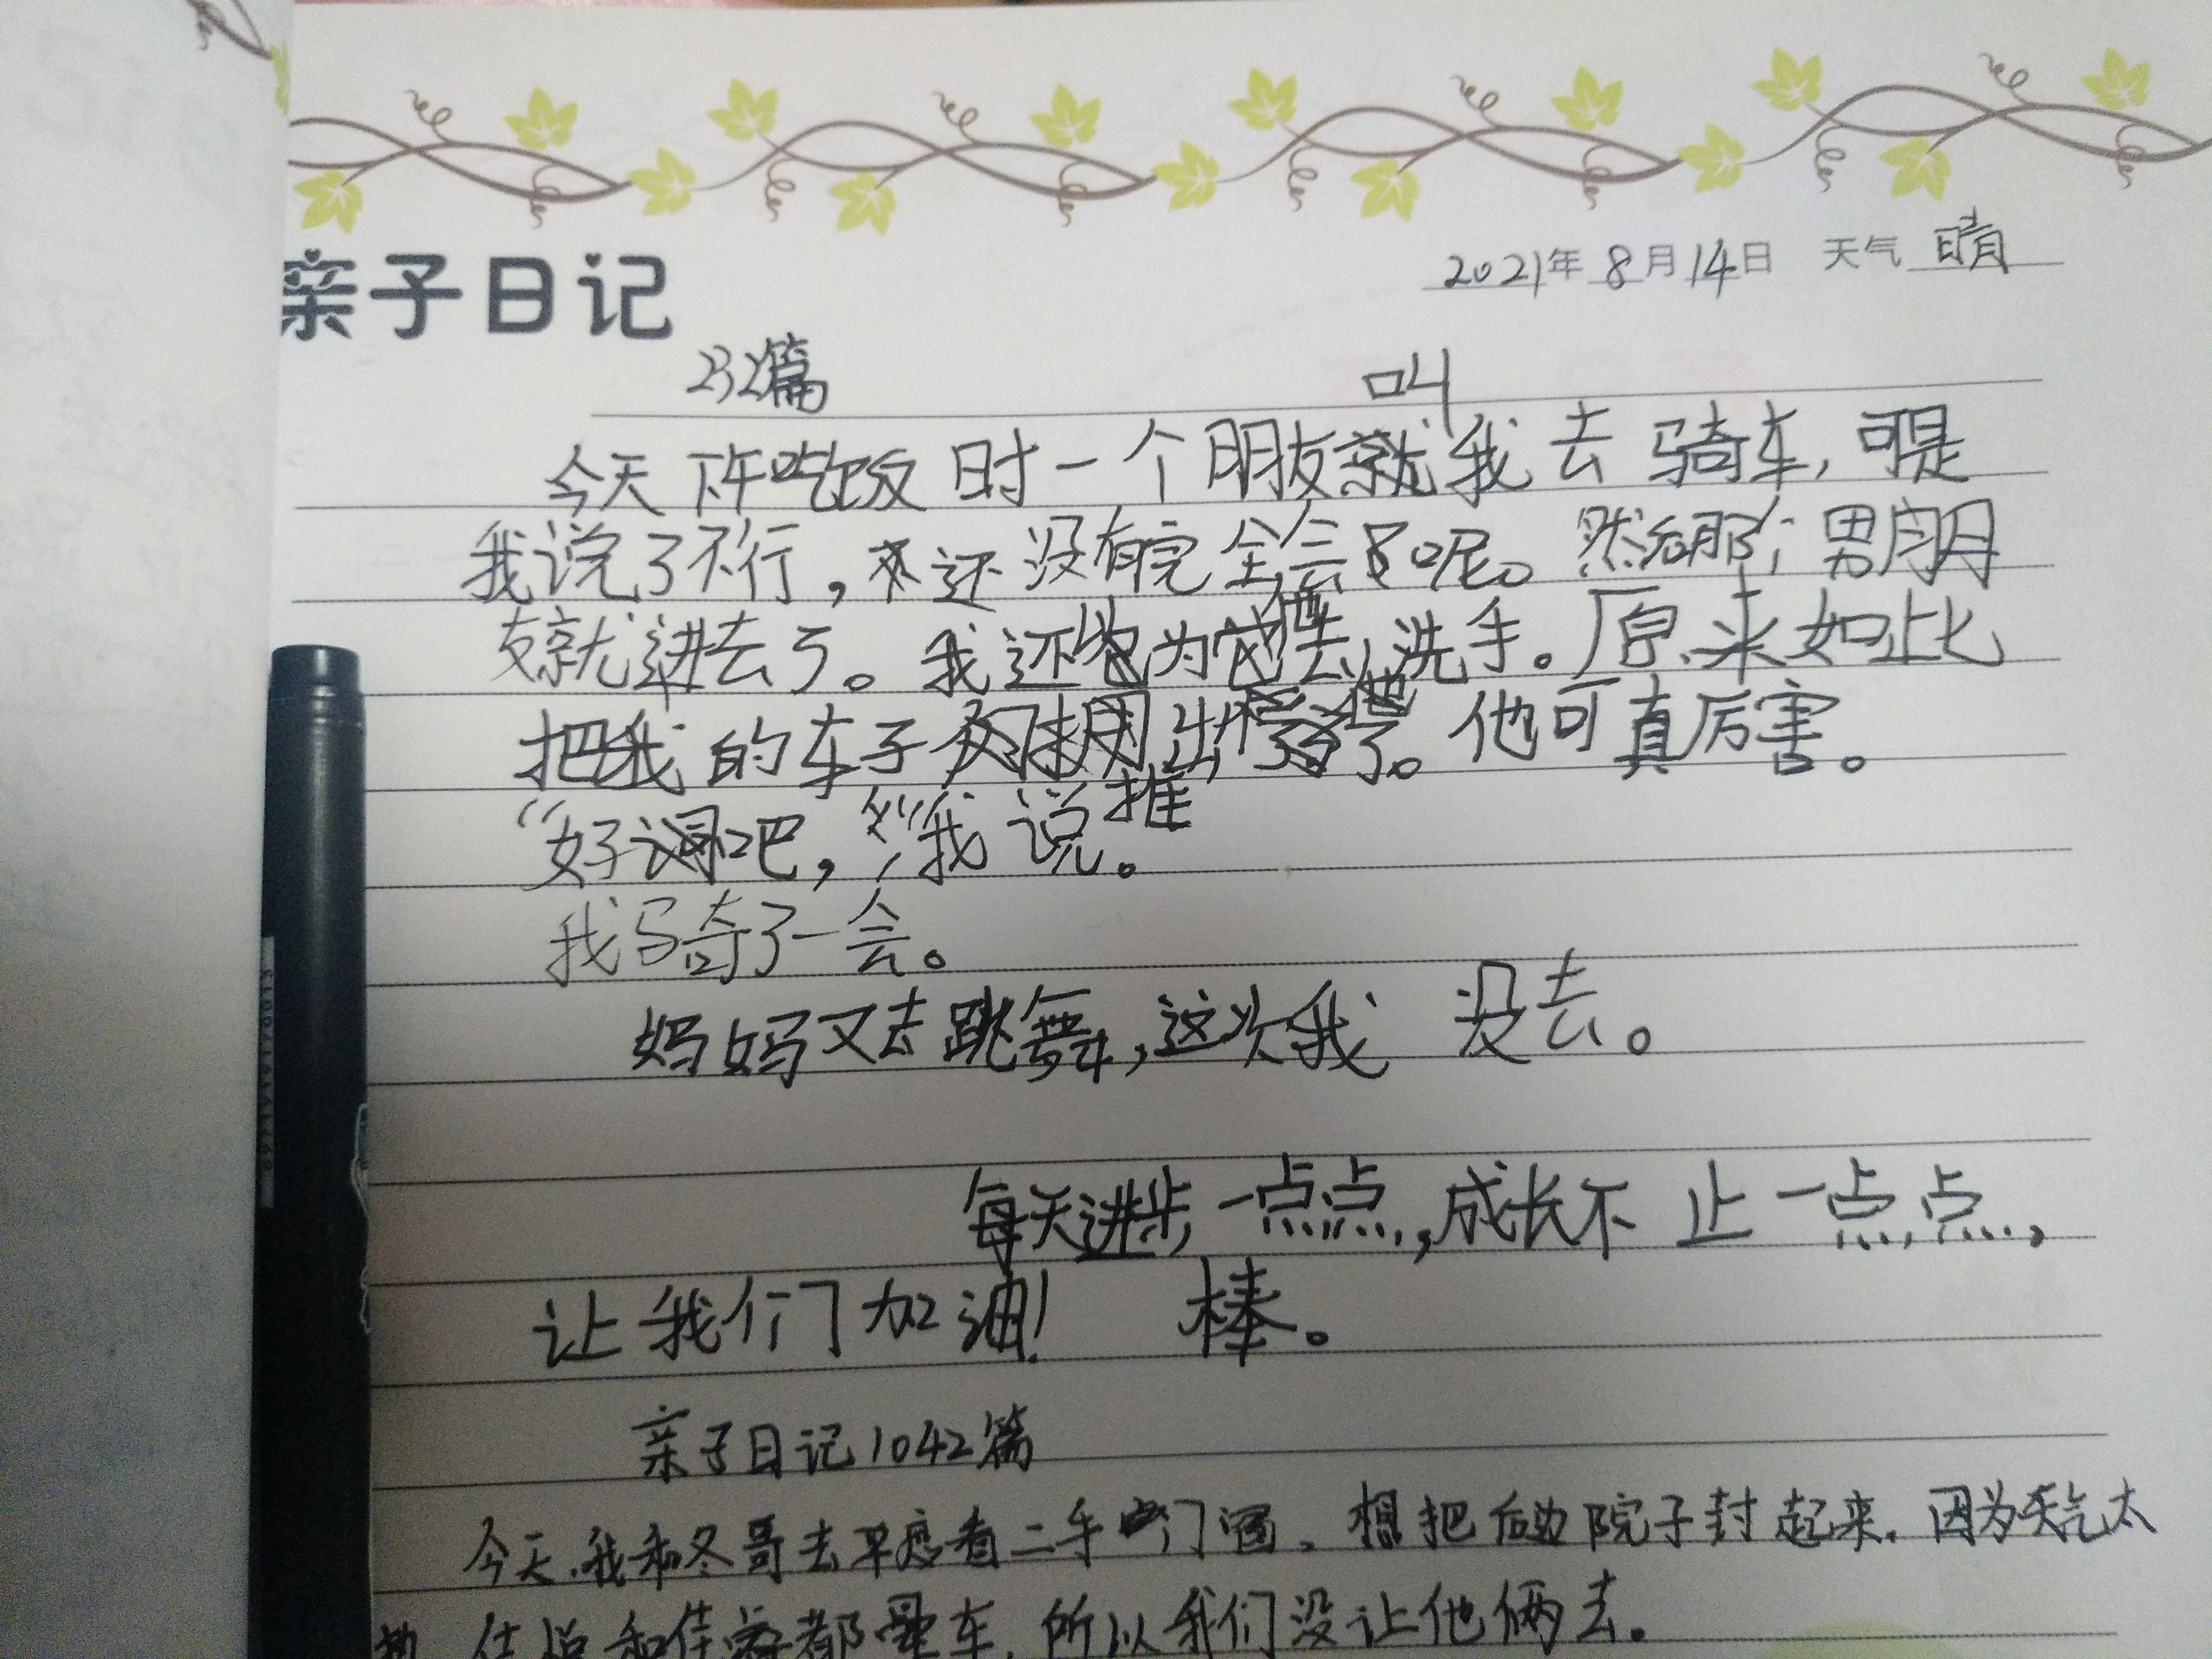 亲子日记
2021年8月14日 天气 晴
232篇
叫
今天下午吃饭时一个朋友就我去骑车,可是
我说了不行,还没有完全会了呢。然后那个男朋
友就进去了。我还以为他去洗手。原来如此
把我的车子出了。他可真厉害。
推
“好吧,”我说。
我骑了一会。
妈妈又去跳舞,这次我 没去。
每天进步一点点,成长不止一点点,
让我们加油! 棒。
亲子日记1042篇
今天.我和冬哥去平度看二手门窗。想把后边院子封起来.因为天气太
和佳 都晕车.所以我们没让他俩去。